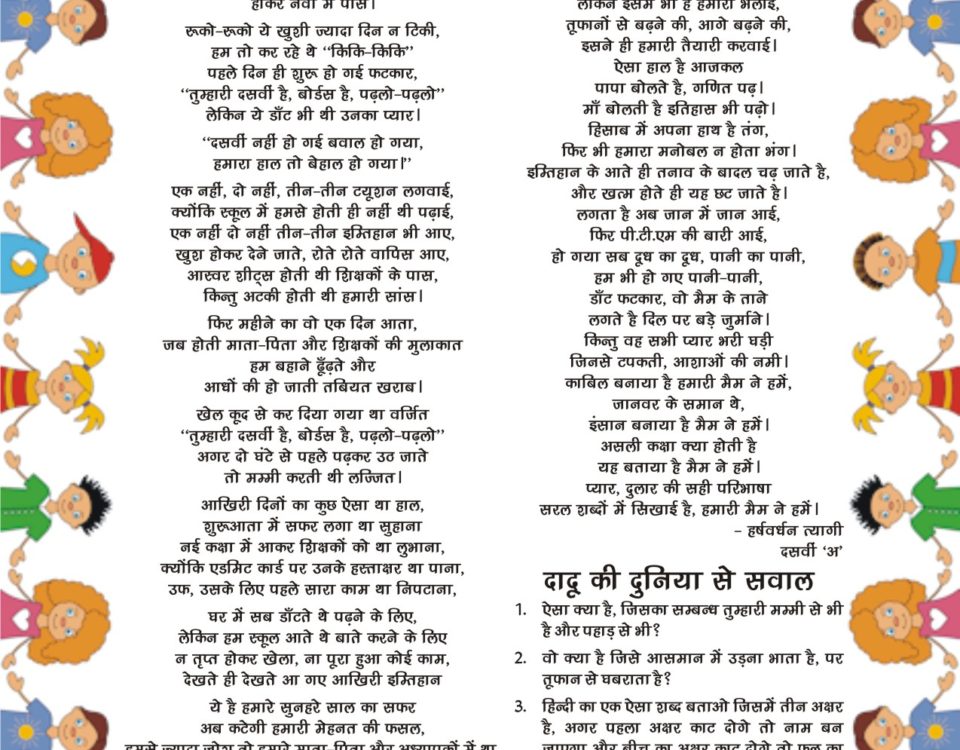 होकर नवीं में पास।
रूको-रूको ये खुशी ज्यादा दिन न टिकी,
हम तो कर रहे थे “किकि-किकि”
पहले दिन ही शुरू हो गई फटकार,
“तुम्हारी दसवीं है, बोर्डस है, पढ़लो-पढ़लो”
लेकिन ये डाँट भी थी उनका प्यार।
“दसवीं नहीं हो गई बवाल हो गया,
हमारा हाल तो बेहाल हो गया।”
एक नहीं, दो नहीं, तीन-तीन टयूशन लगवाई,
क्योंकि स्कूल में हमसे होती ही नहीं थी पढ़ाई,
एक नहीं दो नहीं तीन-तीन इम्तिहान भी आए,
खुश होकर देने जाते, रोते रोते वापिस आए,
आस्वर शीट्स होती थी शिक्षकों के पास,
किन्तु अटकी होती थी हमारी सांस।
फिर महीने का वो एक दिन आता,
जब होती माता-पिता और शिक्षकों की मुलाकात
हम बहाने ढूँढ़ते और
आधों की हो जाती तबियत खराब।
खेल कूद से कर दिया गया था वर्जित
“तुम्हारी दसवीं है, बोर्डस है, पढ़लो-पढ़लो”
अगर दो घंटे से पहले पढ़कर उठ जाते
तो मम्मी करती थी लज्जित।
आखिरी दिनों का कुछ ऐसा था हाल,
शुरूआता में सफर लगा था सुहाना
नई कक्षा में आकर शिक्षकों को था लुभाना,
क्योंकि एडमिट कार्ड पर उनके हस्ताक्षर था पाना,
उफ, उसके लिए पहले सारा काम था निपटाना,
घर में सब डाँटते थे पढ़ने के लिए,
लेकिन हम स्कूल आते थे बाते करने के लिए
न तृप्त होकर खेला, ना पूरा हुआ कोई काम,
देखते ही देखते आ गए आखिरी इम्तिहान
ये है हमारे सुनहरे साल का सफर
अब कटेगी हमारी मेहनत की फसल,
हमसे ज्यादा जोश तो हमारे माता-पिता और अध्यापकों में था
लेकिन इसमें भी है हमारी भलाई,
तूफानों से बढ़ने की, आगे बढ़ने की,
इसने ही हमारी तैयारी करवाई।
ऐसा हाल है आजकल
पापा बोलते है, गणित पढ़।
माँ बोलती है इतिहास भी पढ़ो।
हिसाब में अपना हाथ है तंग,
फिर भी हमारा मनोबल न होता भंग।
इम्तिहान के आते ही तनाव के बादल चढ़ जाते है,
और खत्म होते ही यह छट जाते है।
लगता है अब जान में जान आई,
फिर पी.टी.एम की बारी आई,
हो गया सब दूध का दूध, पानी का पानी,
हम भी हो गए पानी-पानी,
डाँट फटकार, वो मैम के ताने
लगते है दिल पर बड़े जुर्माने।
किन्तु वह सभी प्यार भरी घड़ी
जिनसे टपकती, आशाओं की नमी।
काबिल बनाया है हमारी मैम ने हमें,
जानवर के समान थे,
इंसान बनाया है मैम ने हमें।
असली कक्षा क्या होती है
यह बताया है मैम ने हमें।
प्यार, दुलार की सही परिभाषा
सरल शब्दों में सिखाई है, हमारी मैम ने हमें।
– हर्षवर्धन त्यागी
दसवीं ‘अ’
दादू की दुनिया से सवाल
1. ऐसा क्या है, जिसका सम्बन्ध तुम्हारी मम्मी से भी
है और पहाड़ से भी?
2. वो क्या है जिसे आसमान में उड़ना भाता है, पर
तूफान से घबराता है?
3. हिन्दी का एक ऐसा शब्द बताओ जिसमें तीन अक्षर
है, अगर पहला अक्षर काट दोगे तो नाम बन
जाएगा और बीच का अक्षर काट दोगे तो फल का